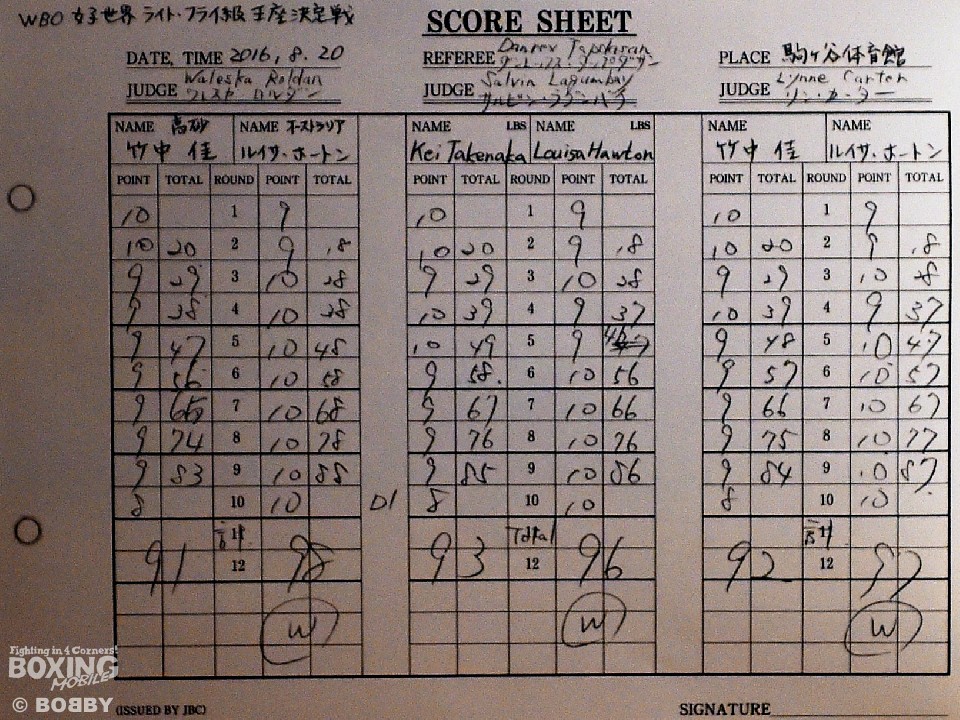 WBO 女子世界 ライト・フライ級 王座決定戦
SCORE SHEET
DATE, TIME 2016, 8. 20 REFEREE PLACE 駒ヶ谷体育館
Waleska Roldan Salvin Lagumbay Lynne Carter
JUDGE JUDGE サルビン・ラグンバイ JUDGE リン・カーター
NAME 高砂 NAME オーストラリア NAME LBS NAME LBS NAME NAME
竹中 佳 ルイサ・ホートン Kei Takenaka Louisa Hawton 竹中 佳 ルイサ・ホートン
POINT TOTAL ROUND POINT TOTAL POINT TOTAL ROUND POINT TOTAL POINT TOTAL ROUND POINT TOTAL
10 1 9 10 1 9 10 1 9
10 20 2 9 18 10 20 2 9 18 10 20 2 9 18
9 29 3 10 28 9 29 3 10 28 9 29 3 10 28
9 38 4 10 38 10 39 4 9 37 10 39 4 9 37
9 47 5 10 48 10 49 5 9 46 9 48 5 10 47
9 56 6 10 58 9 58 6 10 56 9 57 6 10 57
9 65 7 10 68 9 67 7 10 66 9 66 7 10 67
9 74 8 10 78 9 76 8 10 76 9 75 8 10 77
9 83 9 10 88 9 85 9 10 86 9 84 9 10 87
8 10 10 D1 8 10 10 8 10 10
合計 Total 合計
91 12 98 93 12 96 92 12 97
W W W
Fighting in 4 Corners!
BOXING
MOBILE
© BOBBY
(ISSUED BY JBC) SIGNATURE